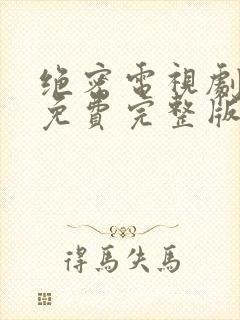 绝密電視劇
免費完整版
得馬失馬